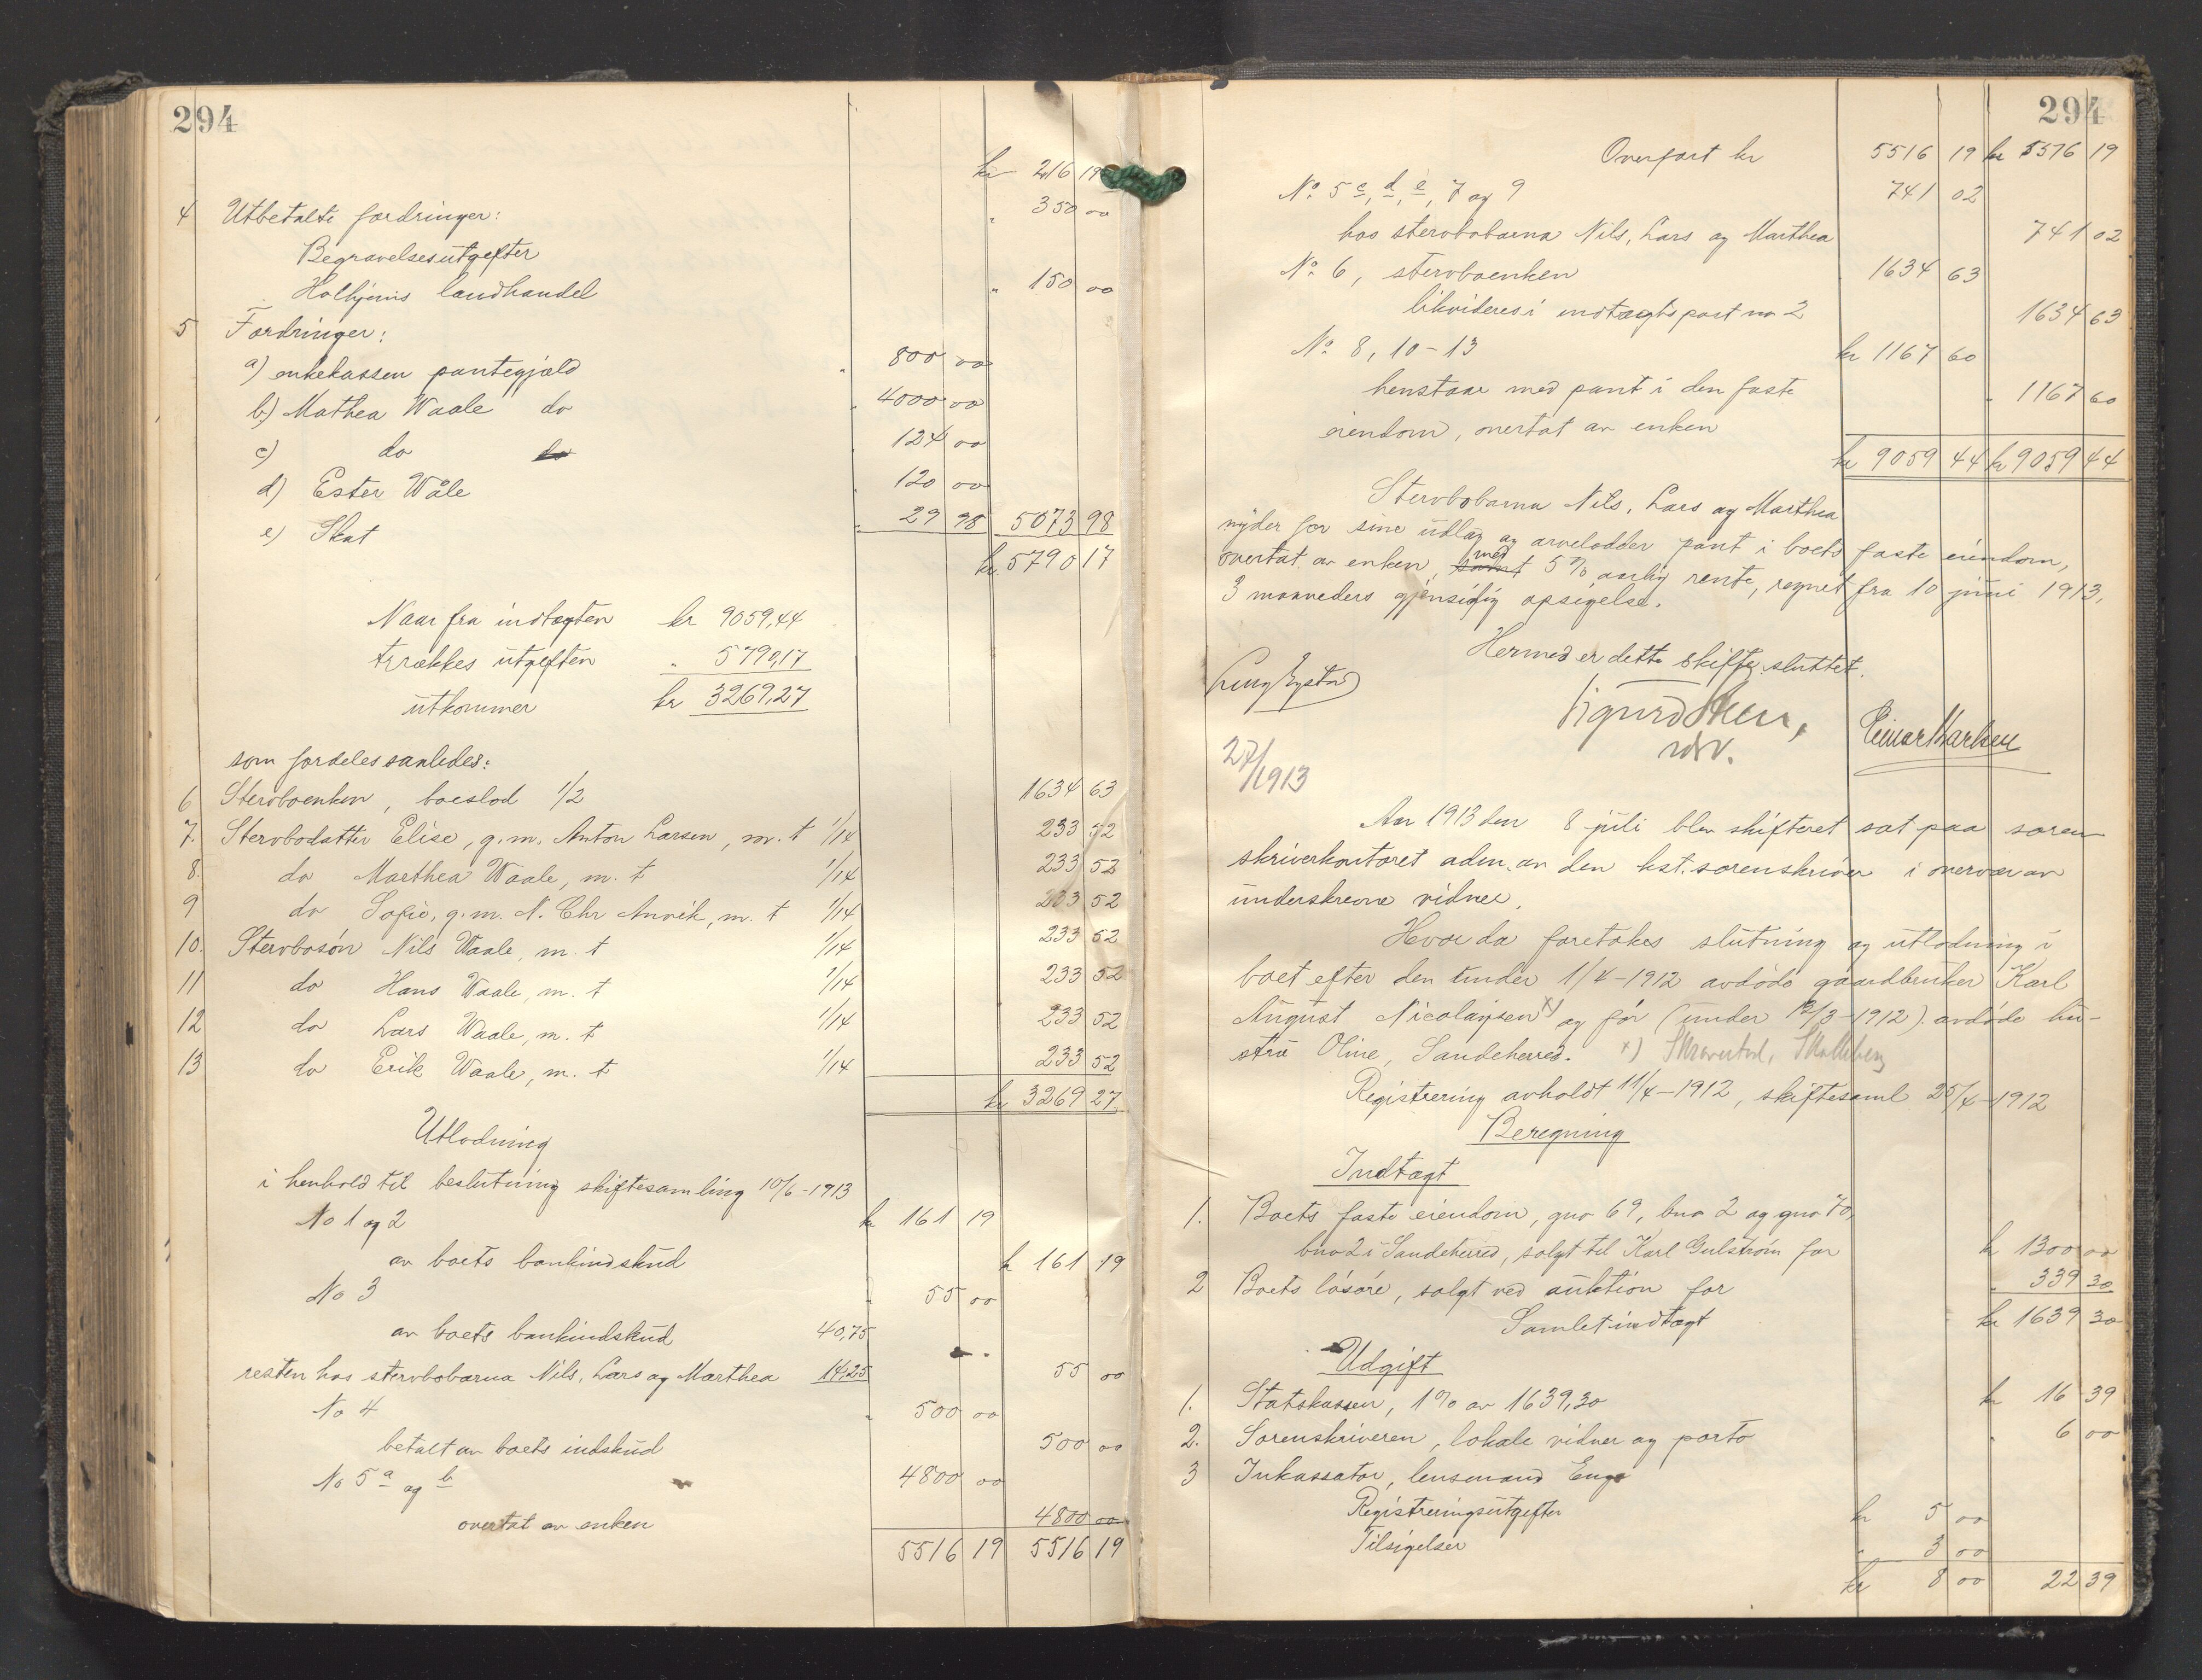 294
kr 216 19
4 Utbetalte fordringer: " 350 00
Begravelsesutgefter
Holhjems landhandel " 150 00
5 Fordringer:
a) enkekassen pantegjæld " 800 00
b) Mathea Waale do " 4000 00
c) do do 124 00
d) Ester Wåle " 120 00
e) Skat " 29 98 5073 98
kr. 5790 17
Naar fra indtægten kr 9059,44
trækkes utgiften " 5790,17
utkommer kr 3269,27
som fordeles saaledes:
6 Stervboenken, boeslod 1/2 1634 63
7. Stervbodatter Elise, g.m. Anton Larsen, m. t 1/14 233 52
8. do Marthea Waale, m. t 1/14 233 52
9 do Sofie, g.m. N. Chr Anvik, m. t 1/14 233 52
10. Stervbosøn Nils Waale, m. t 1/14 233 52
11 do Hans Waale, m. t 1/14 233 52
12 do Lars Waale, m. t 1/14 233 52
13 do Erik Waale, m. t 1/14 233 52
kr 3269 27
Utlodning
i henhold til beslutning skiftesamling 10/6-1913
No 1 og 2 kr 161 19
av boets bankindskud kr 161 19
No 3 " 55 00
av boets bankindskud 40,75
resten hos stervbobarna Nils, Lars og Marthea 14,25 55 00
No 4 " 500 00
betalt av boets indskud 500 00
No 5 a og b 4800 00
overtat av enken 4800 00
5516 19 5516 19
294
Overført kr 5516 19 kr 5516 19
No 5 c, d, e, 7 og 9 741 02
hos stervbobarna Nils, Lars og Marthea 741 02
No 6, stervboenken 1634 63
likvideres i indtægtspost no 2 1634 63
No 8, 10-13 kr 1167 60
henstaar med pant i den faste " 1167 60
eiendom, overtat av enken
kr 9059 44 kr 9059 44
Stervbobarna Nils, Lars og Marthea
nyder for sine udlæg og arvelodder pant i boets faste eiendom,
overtat av enken, samt med 5% aarlig rente, regnet fra 10 juni 1913,
3 maaneders gjensidig opsigelse.
Hermed er dette skifte sluttet.
Einar Karlsen
27/1913
Aar 1913 den 8 juli blev skifteret sat paa soren-
skriverkontoret adm. av den kst. sorenskriver i overvær av
underskrevne vidner.
Hvor da foretokes slutning og utlodning i
boet efter den under 1/4-1912 avdøde gaardbruker Karl
August Nicolaysen x) og før (under 12/3-1912) avdøde hu-
stru Oline, Sandeherred. x)
Registrering avholdt 11/4-1912, skiftesaml 25/4-1912
Beregning
Indtægt
1. Boets faste eiendom, gno 69, bno 2 og gno 70,
bno 2 i Sandeherred, solgt til Karl Gulstrøm for kr 1300 00
2 Boets løsøre, solgt ved auktion for " 339 30
Samlet indtægt kr 1639 30
Udgift
1. Statskassen, 1% av 1639,30 kr 16 39
2. Sorenskriveren, lokale vidner og porto " 6 00
3 Inkassator, lensmand Enge
Registreringsutgefter kr 5 00
Tilsigelser " 3 00
kr 8 00 22 39